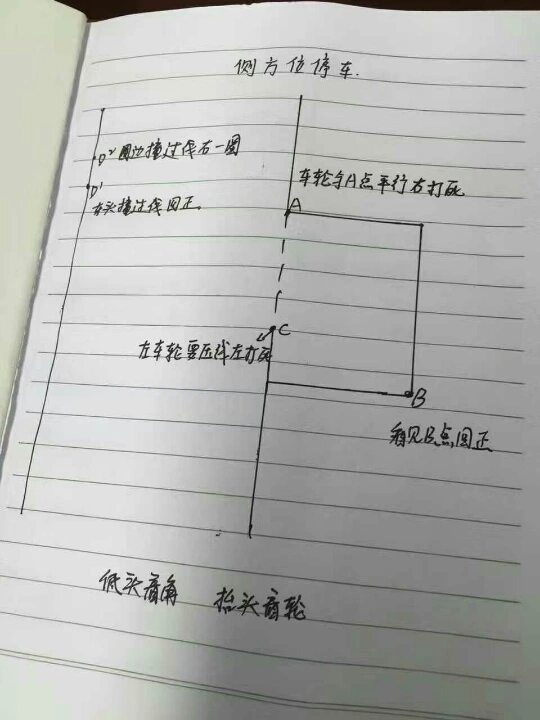 侧方位停车.
D² 圆边撞过线右一圈
D¹
车头撞过线回正.
车轮与A点平行右打死
A
C
左车轮要压线左打死
B
看见B点回正
低头看角 抬头看轮